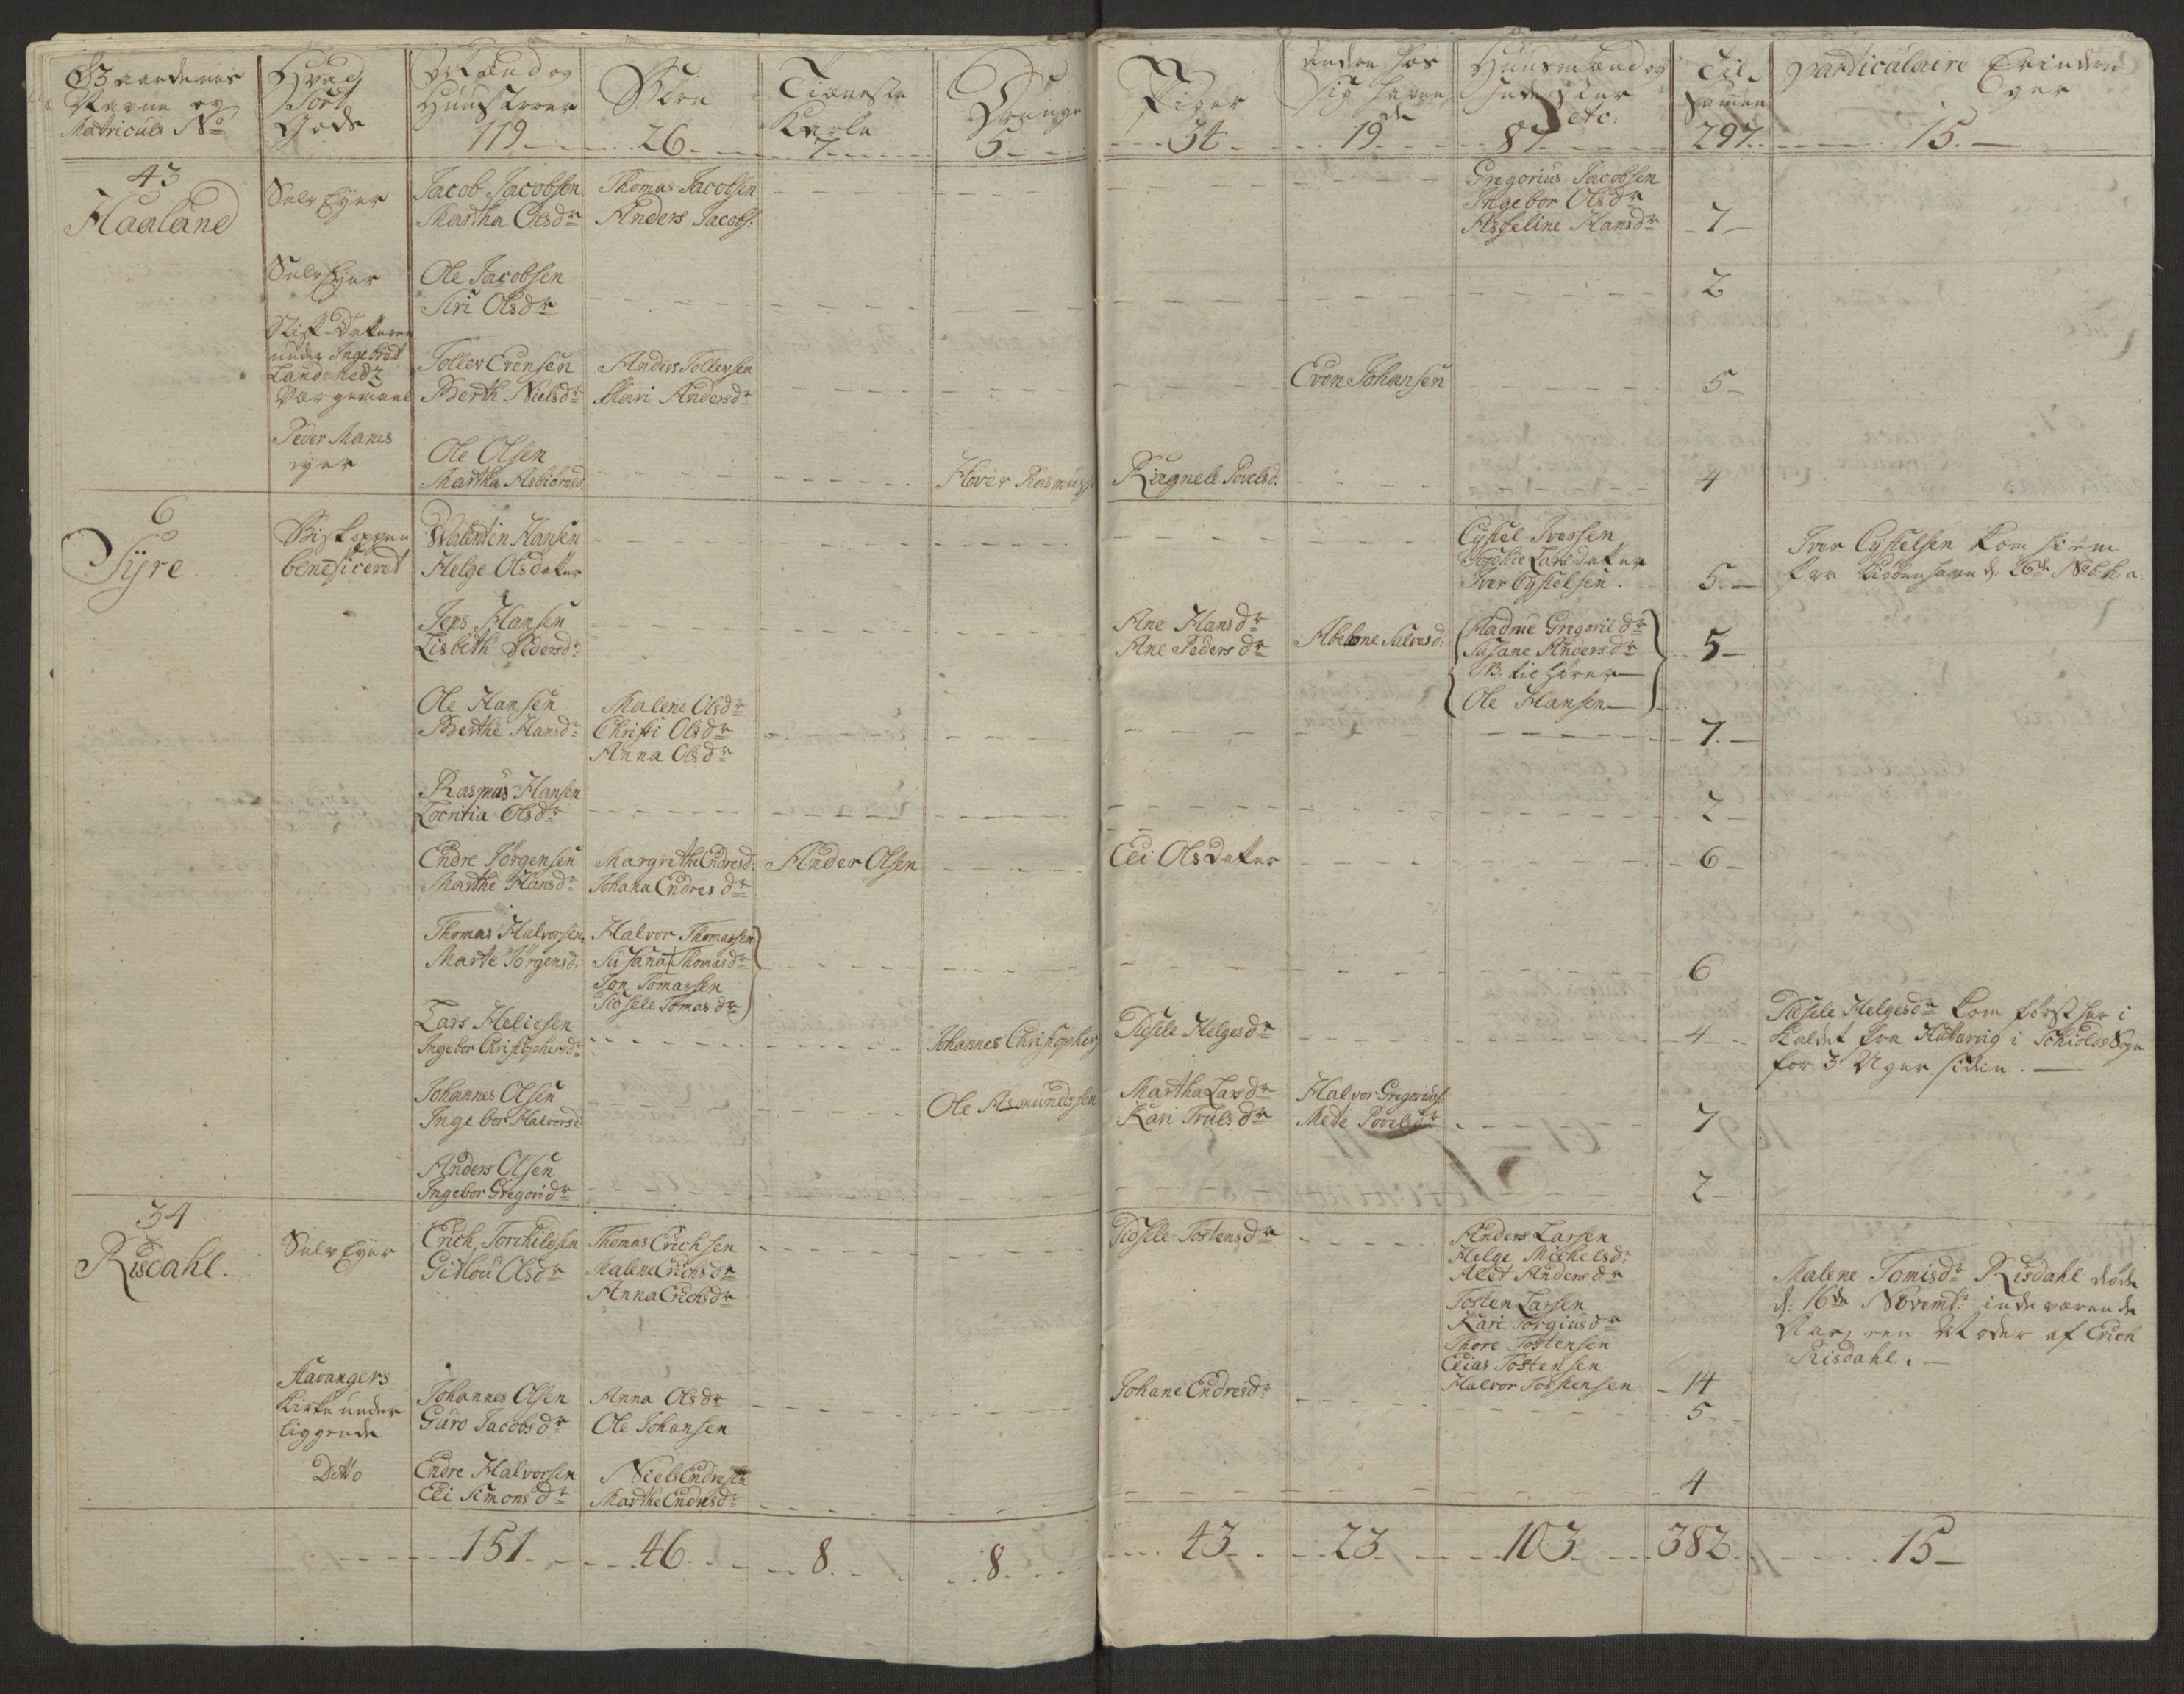 Gaardenes
Navne og
Matriculs No
Hvad
Sort
Gods
Mænd og
Huustroer
119
Börn
26
Tieneste
Karle
7
Drenge
5
Piger
34
anden hos
sig haven
de
19
Huusmænd og
Inderster
etc:
87
Til
Sammen
297
particulaire Erindrin
ger
15
43
Haaland
Selv Eyer
Jacob Jacobsen
Martha Olsdr
Thomas Jacobsen
Anders Jacobs:
Gregorius Jacobsen
Ingebor Olsdr
Asseline Hansdr
7
Selv Eyer
Ole Jacobsen
Siri Olsdr
2
under Ingebret
Landehedz
Tollev Evensen
Berth Nielsdr
Anders Tollevsen
Mari Andersdr
Even Johansen
5
Peder Manes
eyer
Ole Olsen
Martha Asbiörnsd.
Hover Rasmuss
Ragnele Povelsd.
4
6
Tyre
Biskoppen
beneficeret
Walentin Hansen
Helge Olsdatter
Eystel Iversen
Torthie Larsdatter
Iver Eystelsen.
5.
Iver Eystelsen kom hiem
fra Kiöbenhavn d. 26de Nob. h: a.
Jens Hansen
Lisbeth Pedersdr
Ane Hansdr
Ane Pedersdr
Abelone Salvesd:
Madme Gregorii dr
Susane Andersdr
NB. tilhörer
Ole Hansen
5
Ole Hansen
Berthe Hansdr
Malene Olsdr
Christi Olsdr
Anna Olsdr
7.
Rasmus Hansen
Locritia Olsdr
2
Endre Jörgensen
Marthe Hansdr
Margrethe Endresd.
Johana Endresdr
Ander Olsen
Eli Olsdatter
6
Thomas Halvorsen
Marte Jörgensd.
Halvor Thomassen
Susana Thomasdr
Jon Tomassen
Tidsele Tomasdr
6
Lars Heliesen
Ingebor Christophersdr
Johannes Christophers
Tidsele Helgesdr
4
Tidsele Helgesdr kom först her i
Kaldet fra Hattervig i Schiolds Sogn
for 3 Uger siden.
Johannes Olsen
Ingebor Halvorsd:
Ole Asmundssen
Martha Larsdr
Kari Trulsdr
Halvor Gregorius:
Mede Povelsdr
7
Anders Olsen
Ingebor Gregoridr
2
34
Risdahl.
Selv Eyer
Erich Torchildsen
Gitlou Olsdr
Thomas Erichsen
Malene Erichsdr
Anna Erichsdr
Tidsele Tostensdr
Anders Larsen
Helge Michelsdr
Alet Andersdr
Tosten Larsen
Kari Torgiusdr
Thore Tostensen
Elias Tostensen
Halvor Tostensen
14
Malene Tomisdr Risdahl döde
d: 16de Novembr: indeværende
Aar, en Moder af Erich
Risdahl.
Stavangers
Kirke under
liggende
Johannes Olsen
Guro Jacobsdr
Anna Olsdr
Ole Johansen
Johane Endresdr
5
Ditto
Endre Halvorsen
Eli Simonsdr
Niels Endresen
Marthe Endresdr
4
151
46
8
8
43
23
103
382
15